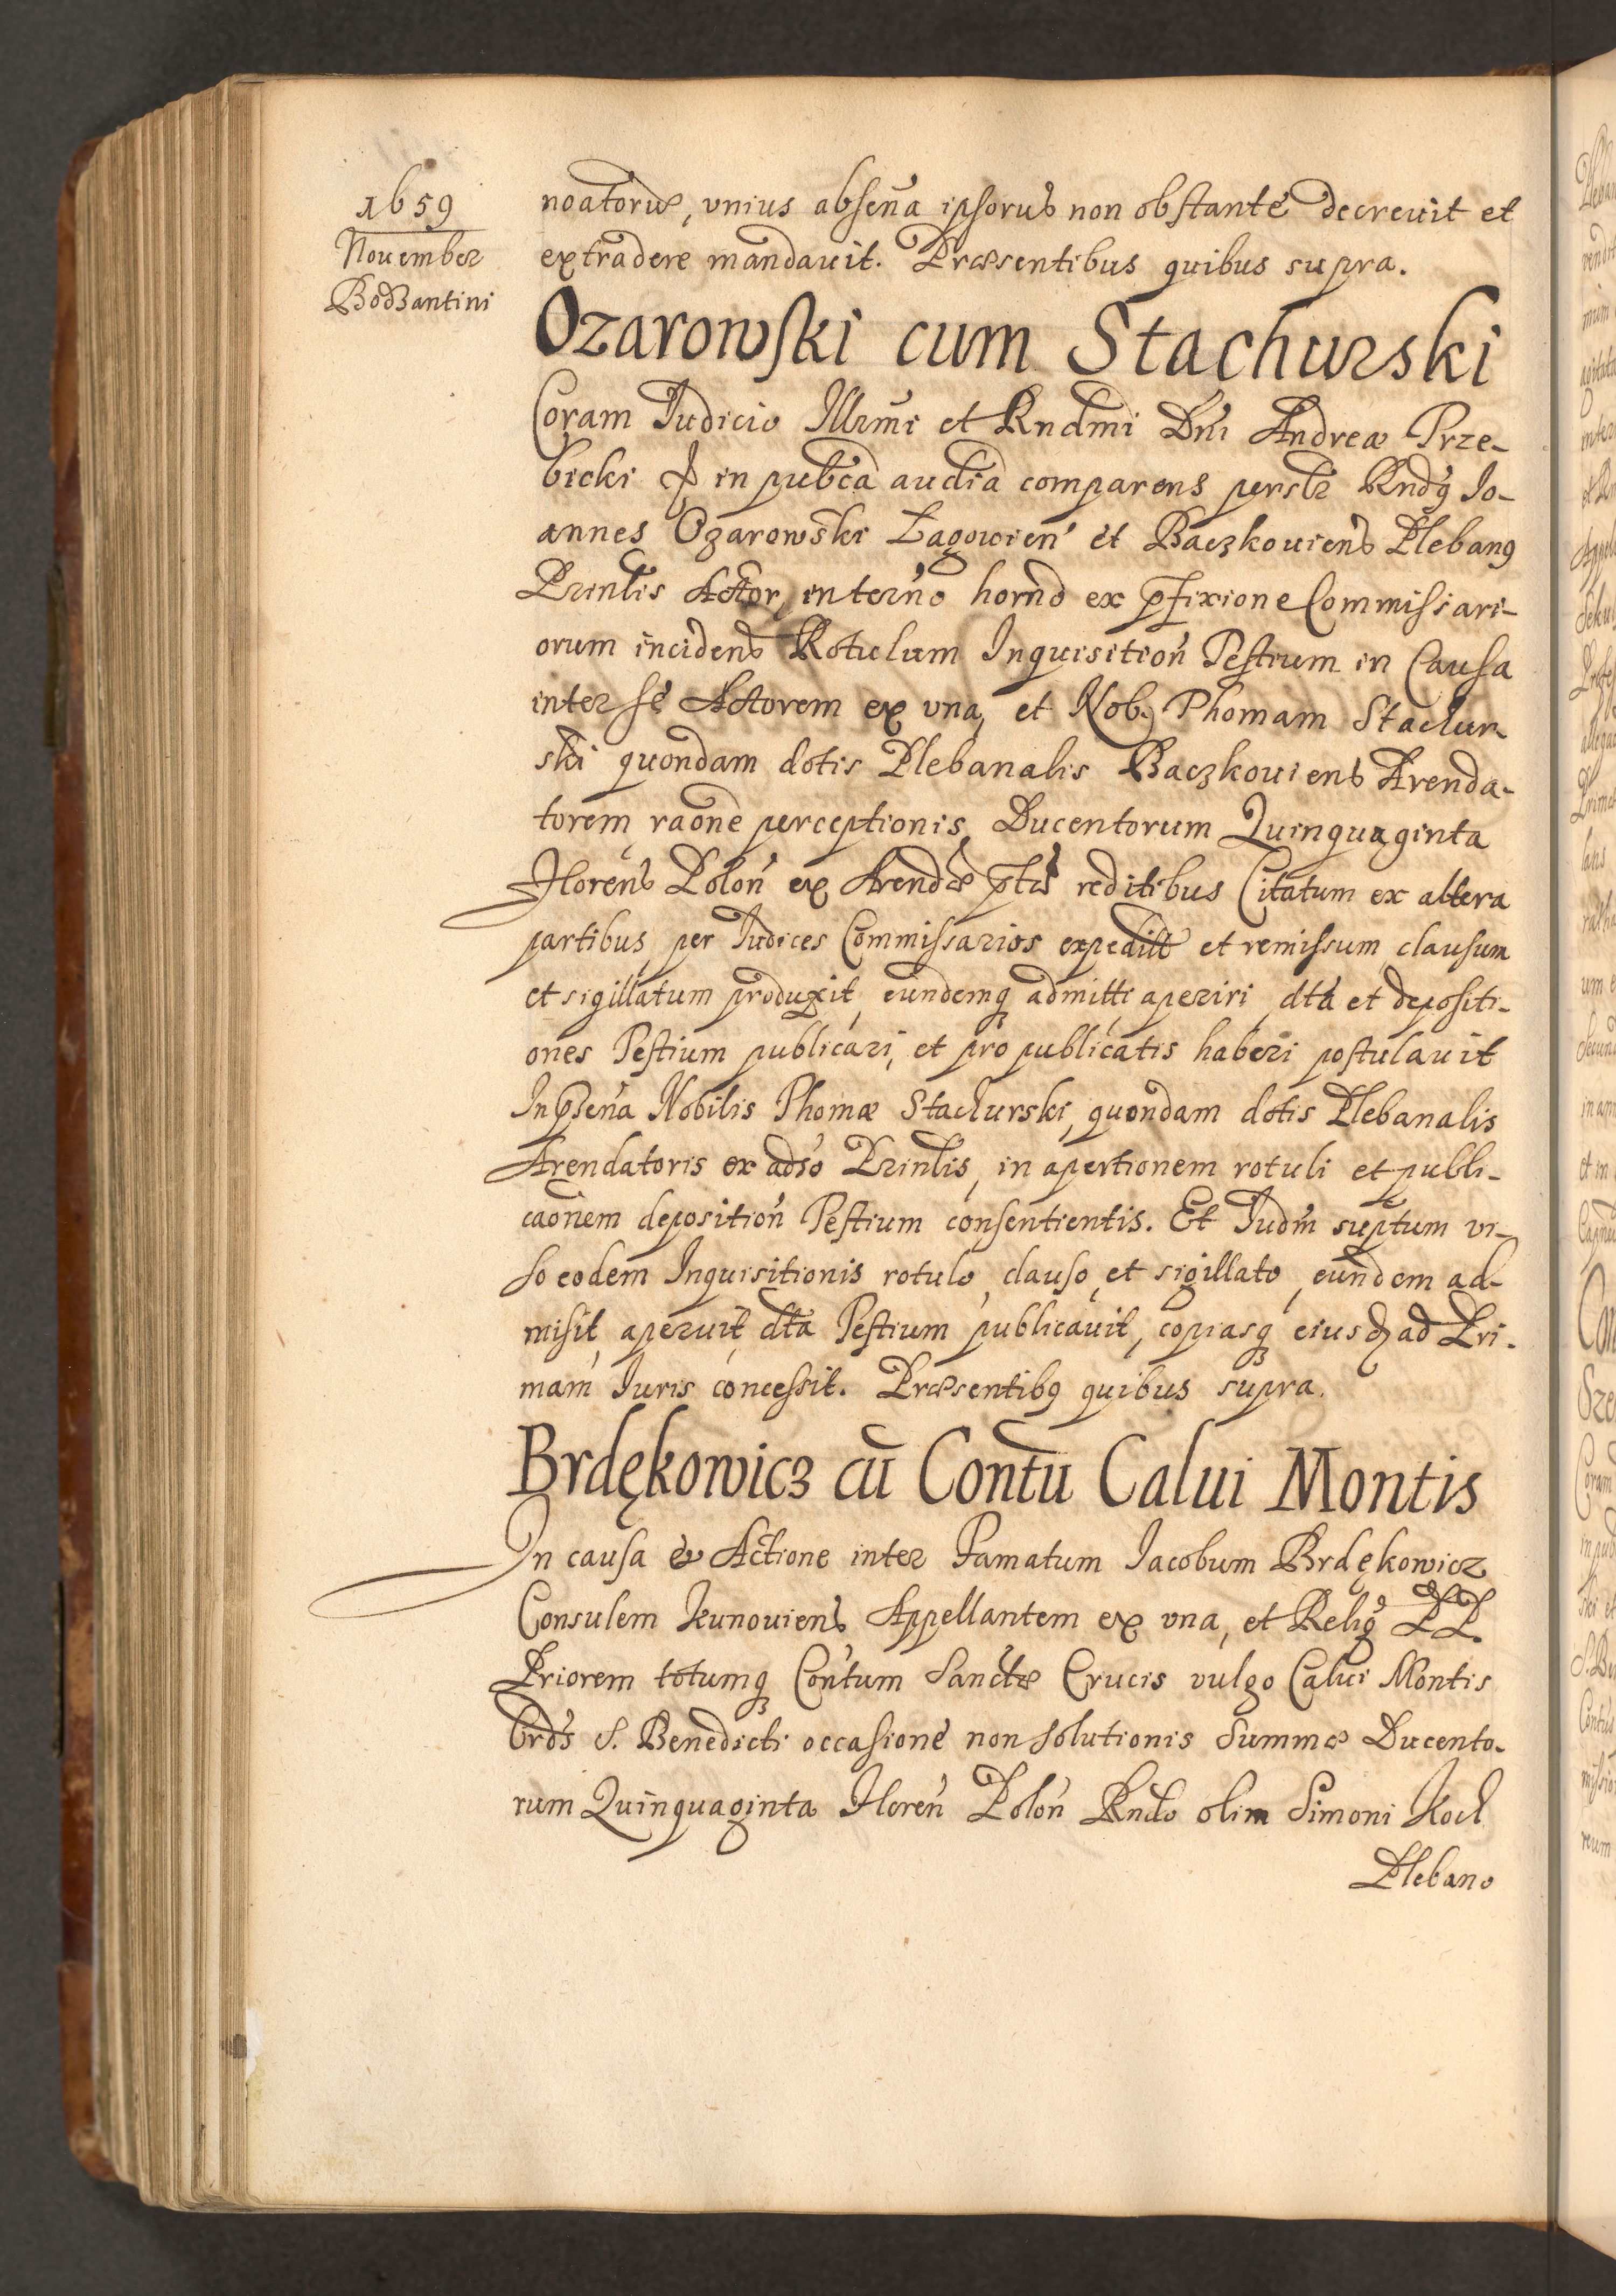 1659
November
Bodzantini
noatorum, vnius absen̄a ipsorum non obstante decreuit et
extradere mandauit. Præsentibus quibus supra.
Ozarowski cum Stachurski
Coram Judicio Illrmi et Rndmi Dni Andreæ Trze-
bicki in pubca audia comparens persolr Rndus Jo-
annes Ozarowski Łagowien et Baczkouiens Plebanus
Prinlis Actor, in termo horno ex pfixione Commissari-
orum incidens Rotulum Inquisition Testium in Causa
inter se Actorem ex vna, et Nob. Thomam Stachur-
ski quondam dotis Plebanalis Baczkouiens Arenda-
torem raone perceptionis Ducentorum Quinquaginta
Florens Polon ex Arendæ reditibus Citatum ex altera
partibus per Judices Commissarios expedit et remissum clausum
et sigillatum produxit, eundemq admitti aperiri, dta et depositi-
ones Testium publicari, et pro publicatis haberi postulauit
In psen̄a Nobilis Thomæ Stachurski, quondam dotis Plebanalis
Arendatoris ex adso Prinlis, in apertionem rotuli et publi-
caonem deposition Testium consentientis. Et Judm suptum vi-
so eodem Inquisitionis rotulo, clauso, et sigillato, eundem ad-
misit, aperuit, dta Testium publicauit, copiasq eiusd ad Pri-
mam Juris concessit. Præsentibus quibus supra.
Brdękowicz cū Contū Calui Montis
In causa & Actione inter Famatum Jacobum Brdękowicz
Consulem Kunouiens Appellantem ex vna, et Relig PP.
Priorem totumq Contum Sanctæ Crucis vulgo Calui Montis
Ordis S. Benedicti occasione non solutionis Summæ Ducento-
rum Quinquaginta Floren Polon Rndo olim Simoni Koch
Plebano